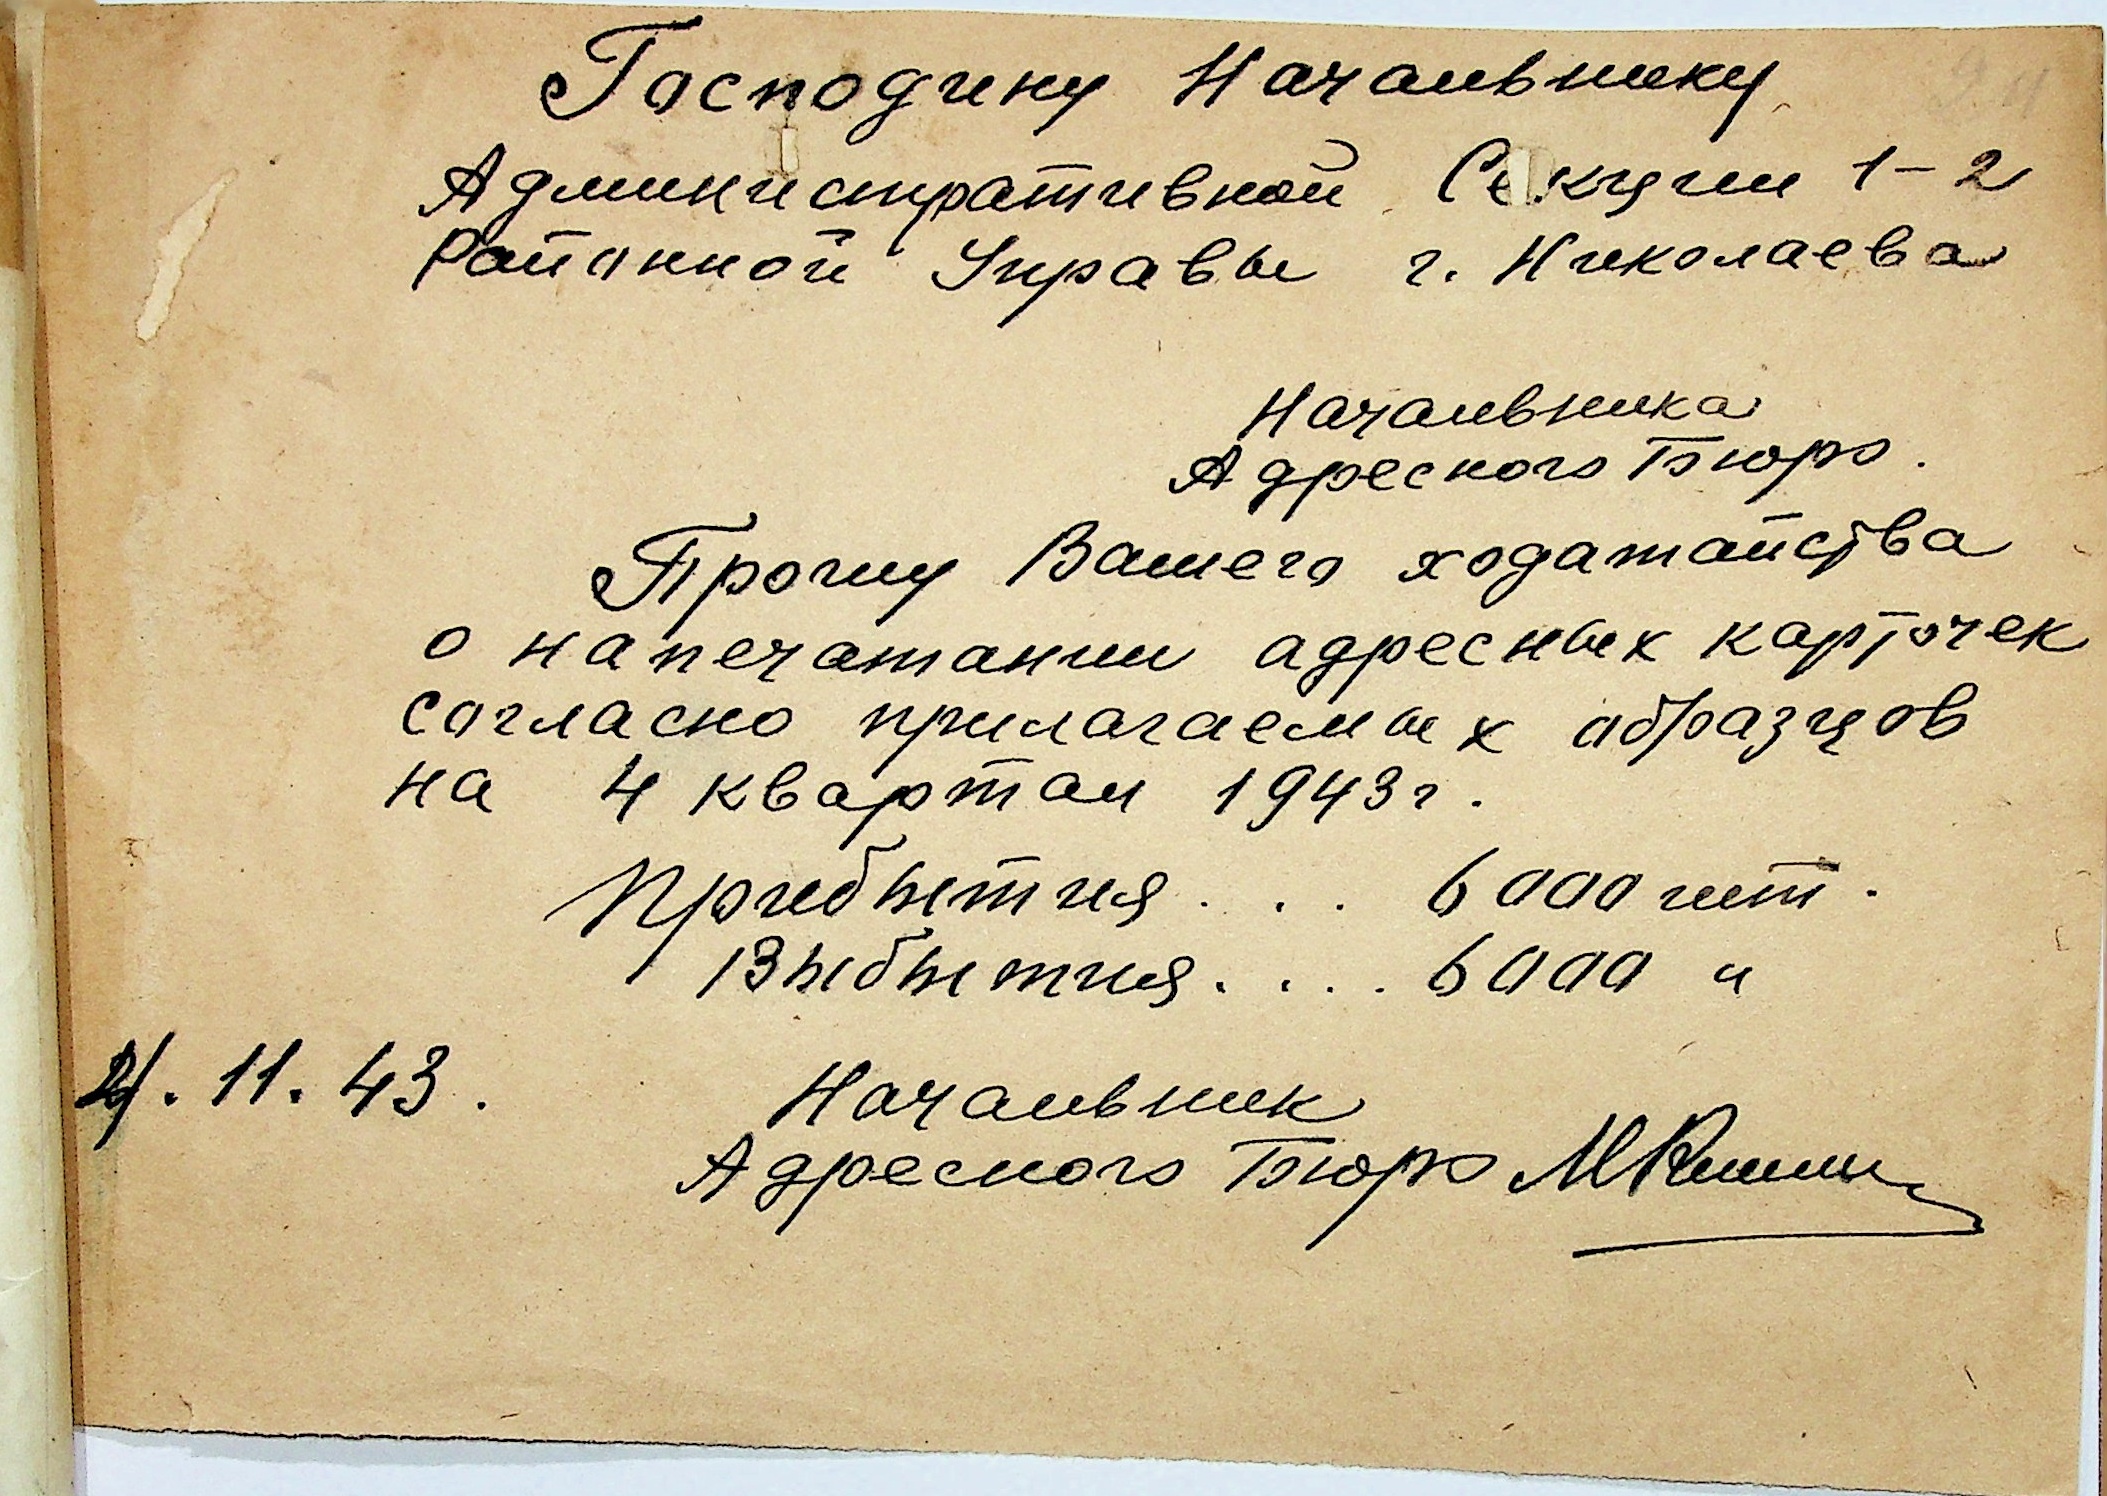 Господину Начальнику
Административной Секции 1-2
Районной Управы г. Николаева
Начальника
Адресного Бюро.
Прошу Вашего ходатайства
о напечатании адресных карточек
согласно прилагаемых образцов
на 4 квартал 1943 г.
Прибытия . . . 6000 шт.
Выбытия . . . . 6000 "
11. 43.
Начальник
Адресного Бюро